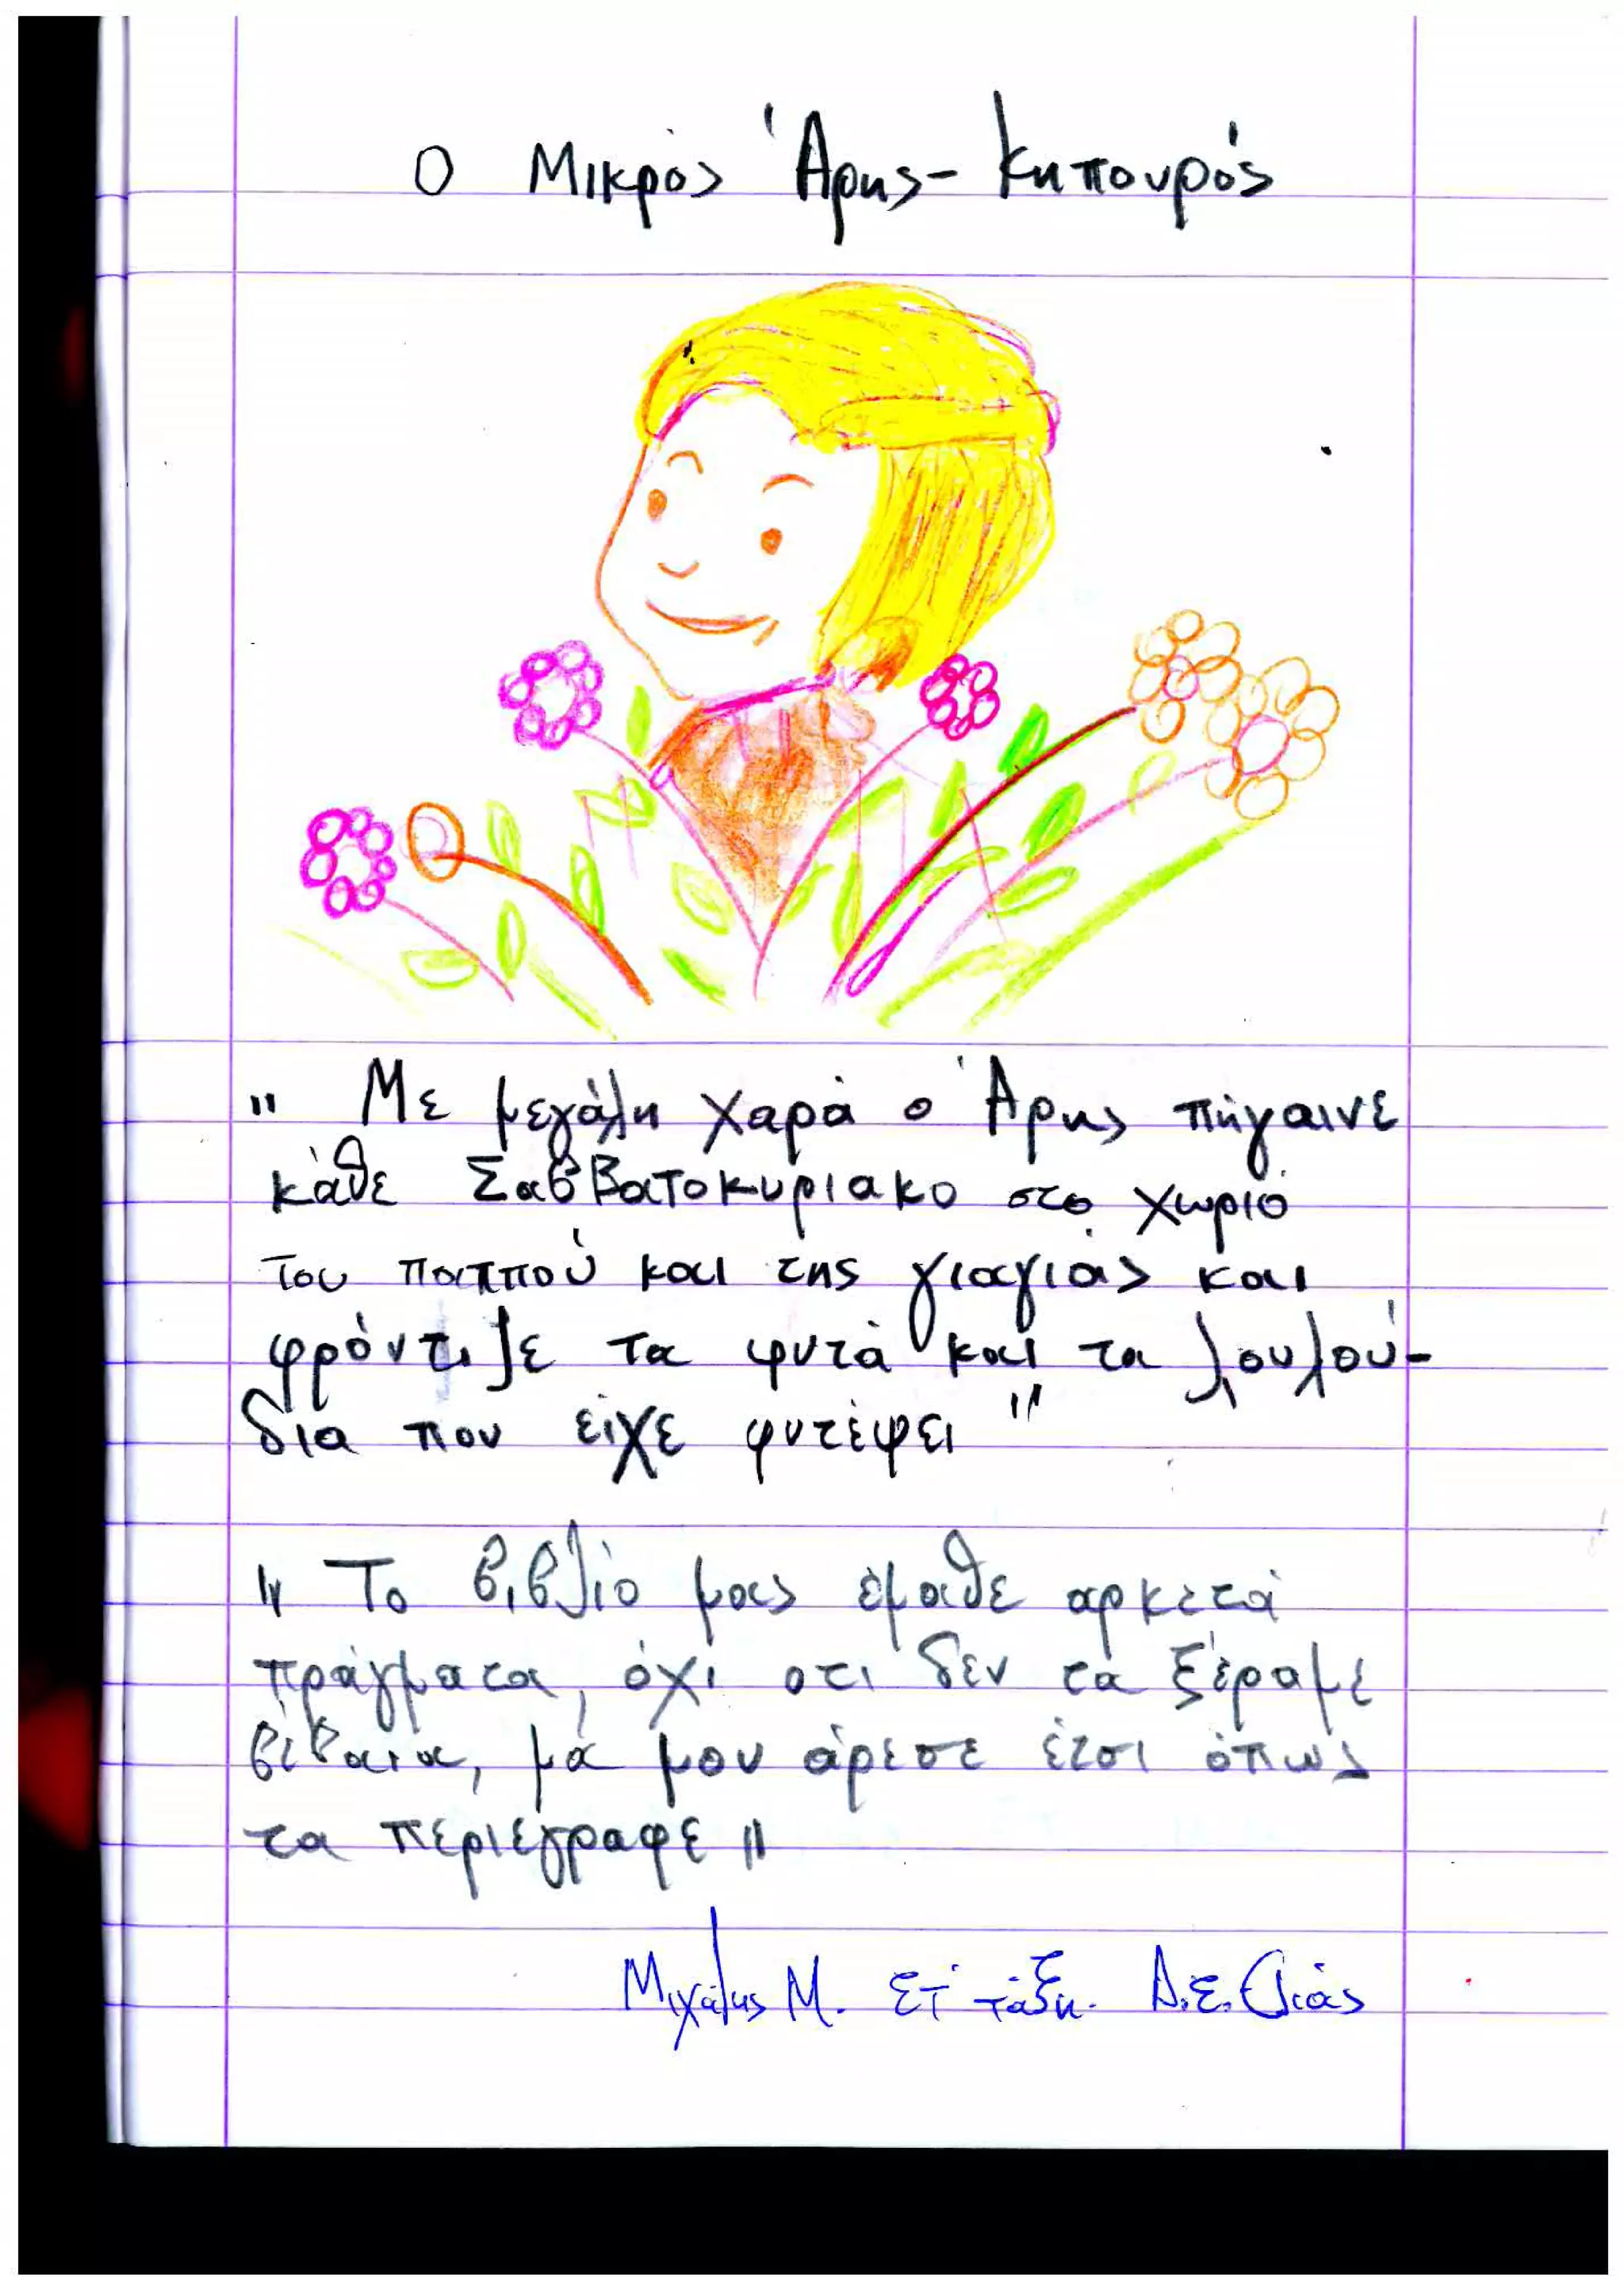 Ο Μικρός Άρης - Κηπουρός
" Με μεγάλη χαρά ο Άρης πήγαινε
κάθε Σαββατοκυριακο στο χωριό
του παππού και της γιαγιάς και
φρόντιζε τα φυτά και τα λουλού-
δια που είχε φυτέψει "
" Το βιβλίο μας έμαθε αρκετά
πράγματα, όχι οτι δεν τα ξέραμε
βέβαια, μά μου άρεσε έτσι όπως
τα περιέγραφε "
Μιχάλης Μ. ΣΤ' τάξη. Δ.Σ. Ελιάς